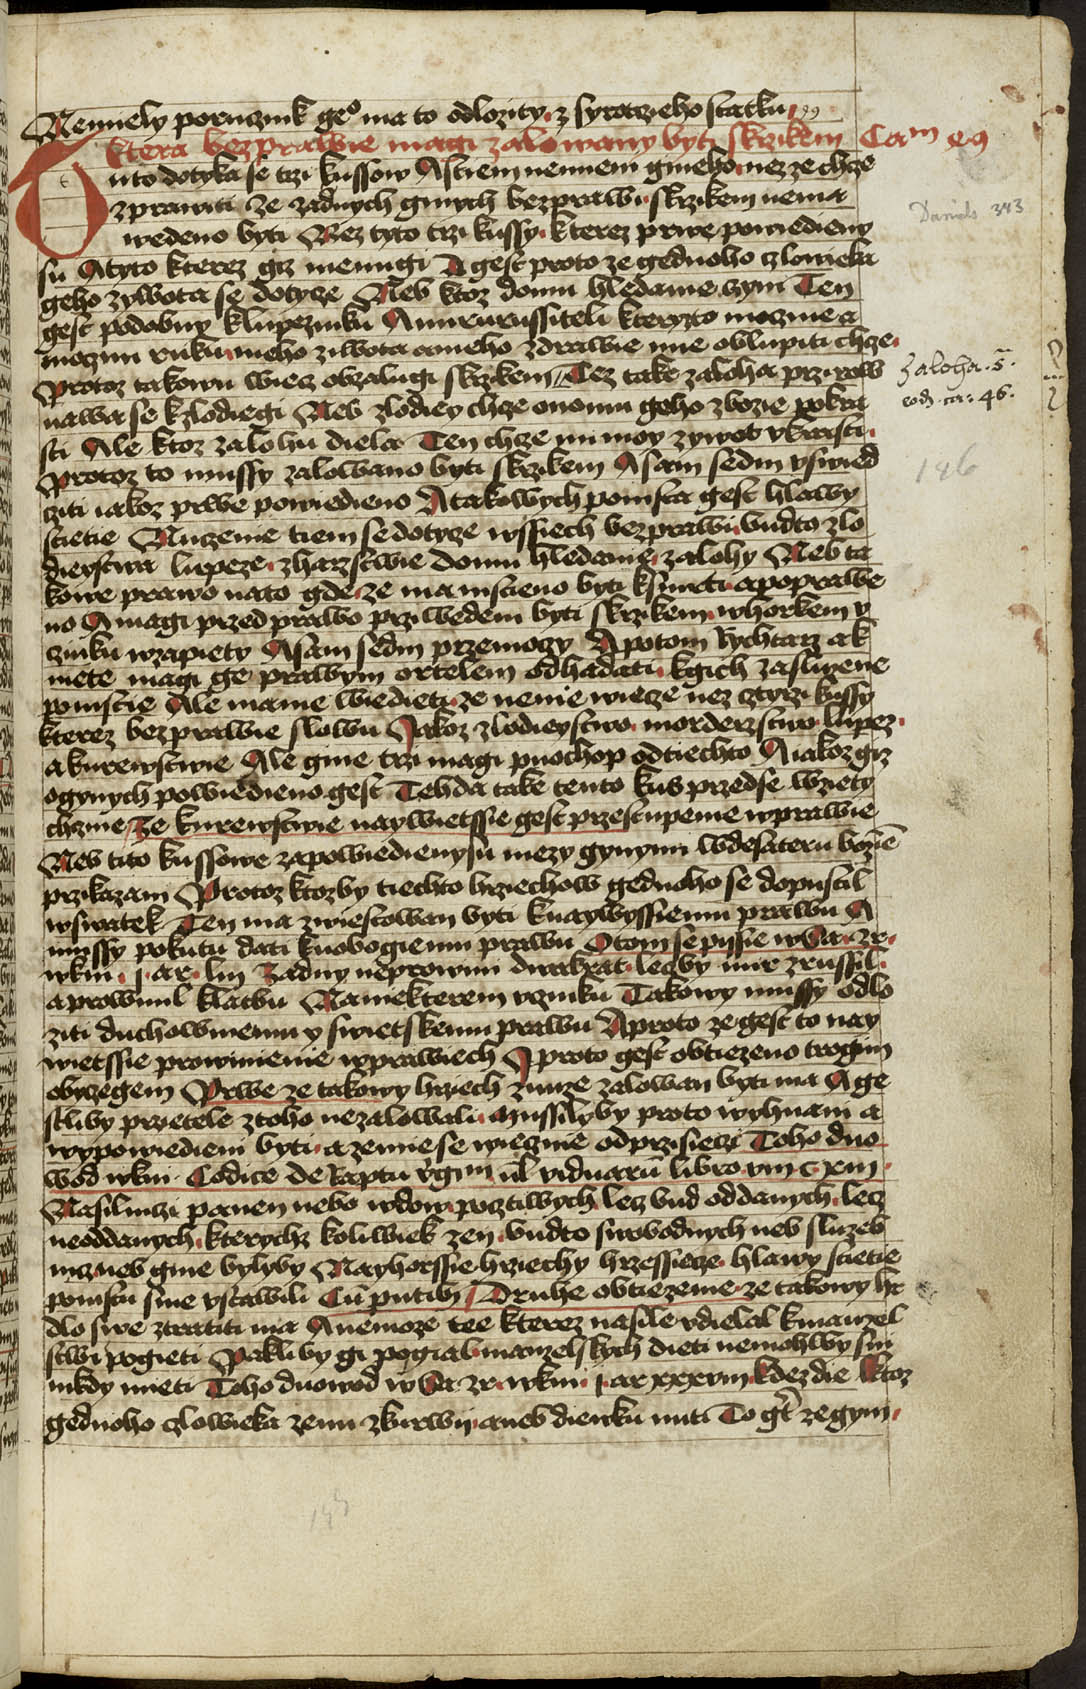 Nenniely porucznik geo ma to odlozity z syroczieho statku
ktera bezprawie magi zalowany byti skrzikem Cam 69
Tuto dotyka se trzi kussow A stiem nenniem gineho nez ze chcze
zprawiti ze zadnych ginych bezprawi skrzikem nema
wedeno byti Nez tyto trzi kussy kterez prwe powiedieny
su A tyto kterez giz mennugi A gest proto ze gednoho czlowieka
geho zywota se dotycze Neb ktoz domu hledanie czyni Ten
gest podobny klupezniku A miru russiteli kteryzto moznie a
moczni ruku meho ziwota a meho zdrawie mie oblupiti chcze
Protoz takowu wiecz obzalugi skrzikem Tez take zaloha przirow
nawa se kzlodiegi Neb zlodiey chcze onomu geho zbozie pokra
sti Ale ktoz zalohu diela Ten chcze mi moy zywot vkrasti
Protoz to mussy zalowano byti skrzikem A sam sedm vswied
cziti iakoz prwe powiedieno A takowych pomsta gest hlawy
stietie Mluczenie tiem se dotycze wssiech bezprawi budto zlo
dieystwa lupeze zharzstwie domu hledanie zalohy Neb ta
kowe prawo na to gde ze ma mstieno byti ksmrti a poprawie
no A magi przed prawo prziwedeni byti skrzikem whorkem v
czinku wzapiety A sam sedm przemozy A potom Rychtarz a k
mete magi ge prawym ortelem odhadati kgich zasluzene
pomstie Ale mame wiedieti ze nenie wiecze nez cztyrzi kussy
kterez bezprawie slowu Jakoz zlodieystwo morderzstwo lupez
a kurewstwie Ale gine trzi magi puochop od tiechto A iakoz giz
o gynych powiedieno gest Tehda take tento kus przedse wziety
chcme Ze kurewstwie naywietssie gest przestupenie wprawie
Neb tito kussowe zapowiedieny su mezy gynymi wdesateru bozie
przikazani Protoz ktozby tiechto hrziechow gednoho se dopustil
wswatek Ten ma zwiestowan byti knaywyssiemu prawu A
mussy pokutu dati kuobogiemu prawu O tom se pisse w Ca zr
wkni j ar liij Zadny neprowini dwakrat lecz by mir zrussil
a prowinil klatbu Na niekterem vczinku Takowy mussy odlo
ziti duchowniemu y swietskemu prawu A proto ze gest to nay
wietssie prowinienie wprawiech A proto gest obtiezeno trogim
obyczegem Prwe ze takowy hrziech zmuze zalowan byti ma A ge
stli by przietele z toho nezalowali mussily by proto wyhnani a
wypowiedieni byti a zemie se wiecznie odprzisieczi Toho duo
wod wkni Codice De Raptu vginu vel viduaru libro viiij c xiij
Nasilniczi panen nebo wdow pocztiwych lecz bud oddanych lecz
neoddanych kterychz koliwiek zen budto swobodnych neb sluzeb
nicz neb gine bylyby Nayhorssie hrziechy hrzessiecze hlawy stietie
pomstu sme vstawili Cu putibz Druhe obtiezenie ze takowy hr
dlo swe ztratiti ma A nemoze tee kterez nasile vdielal kmanzel
stwi pogieti Pakli by gi pogial manzelskych dieti nemohl by s ni
nikdy mieti Toho duowod w Ca zr wkni j ar xxxvij kdezdie Ktoz
gednoho czlowieka zenu zkurwij aneb diewku mti To gt ze gym
Daniels 343
Zaloha 5
wdz. ca: 46.
146
145